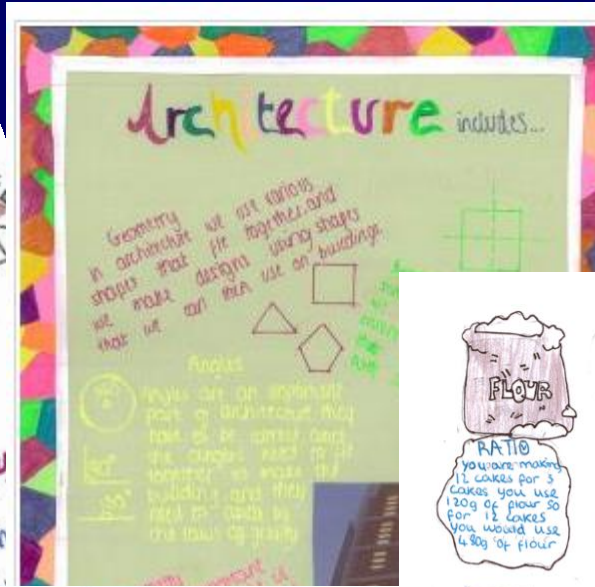 Architecture includes...
Geometry
in architecture we use various
shapes that fit together and
we make designs using shapes
that we can then use on buildings
Angles
Angles are an important
part of architecture they
have to be correct since
the angles need to fit
together to make the
building and they
need to obey
the laws of gravity
FLOUR
RATIO
you are making
12 cakes for 3
cakes you use
120g of flour so
for 12 cakes
you would use
480g of flour